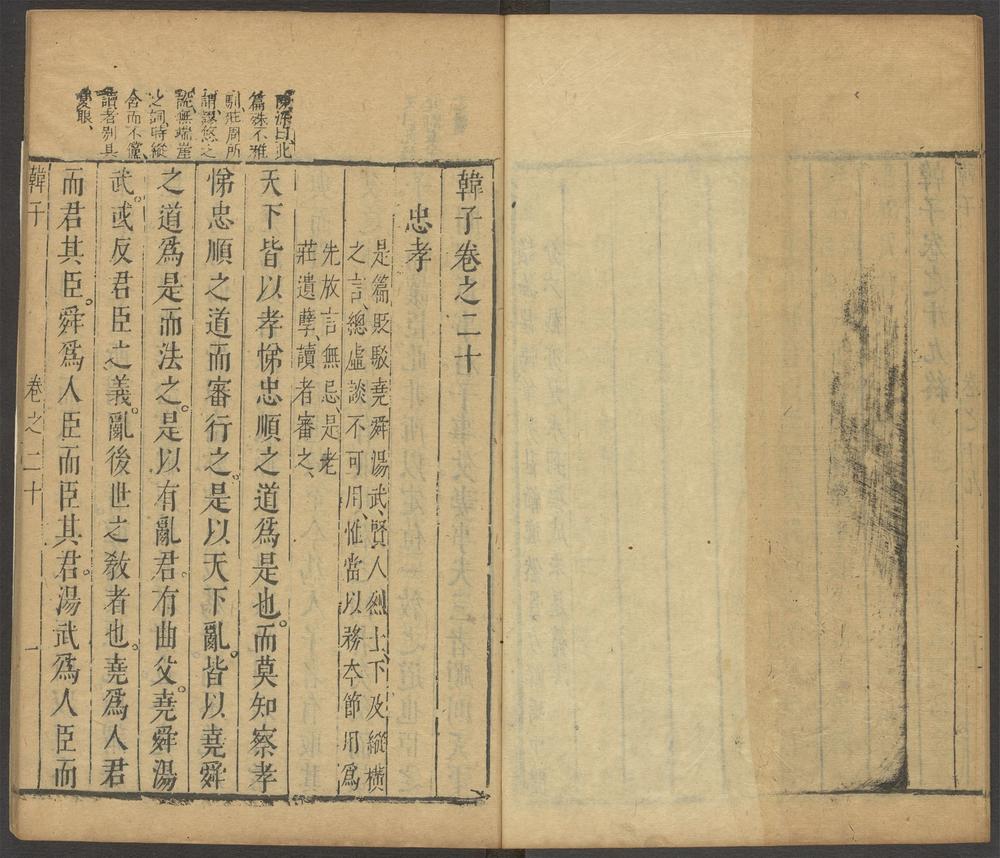 韓子卷之二十
忠孝
是篇貶駁堯舜湯武、賢人烈士、下及縱橫
之言、總虛談不可用、惟當以務本節用爲
先放言無忌、是老
莊遺孽、讀者審之、
天下皆以孝悌忠順之道爲是也。而莫知察孝
悌忠順之道而審行之。是以天下亂。皆以堯舜
之道爲是而法之。是以有亂君。有曲父。堯舜湯
武。或反君臣之義。亂後世之敎者也。堯爲人君
而君其臣。舜爲人臣而臣其君。湯武爲人臣而
韓子
卷之二十
一
曰此
篇殊不雅
馴莊周所
謂謬悠之
說無端崖
之詞時縱
舍而不儻
讀者別具
隻眼、